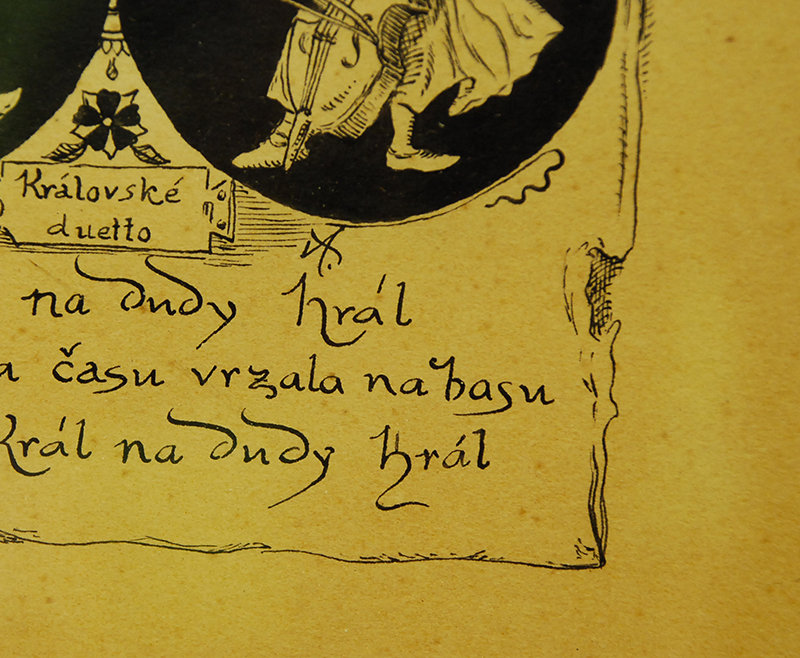 Královské
duetto
na dudy hrál
a času vrzala na basu
Král na dudy hrál